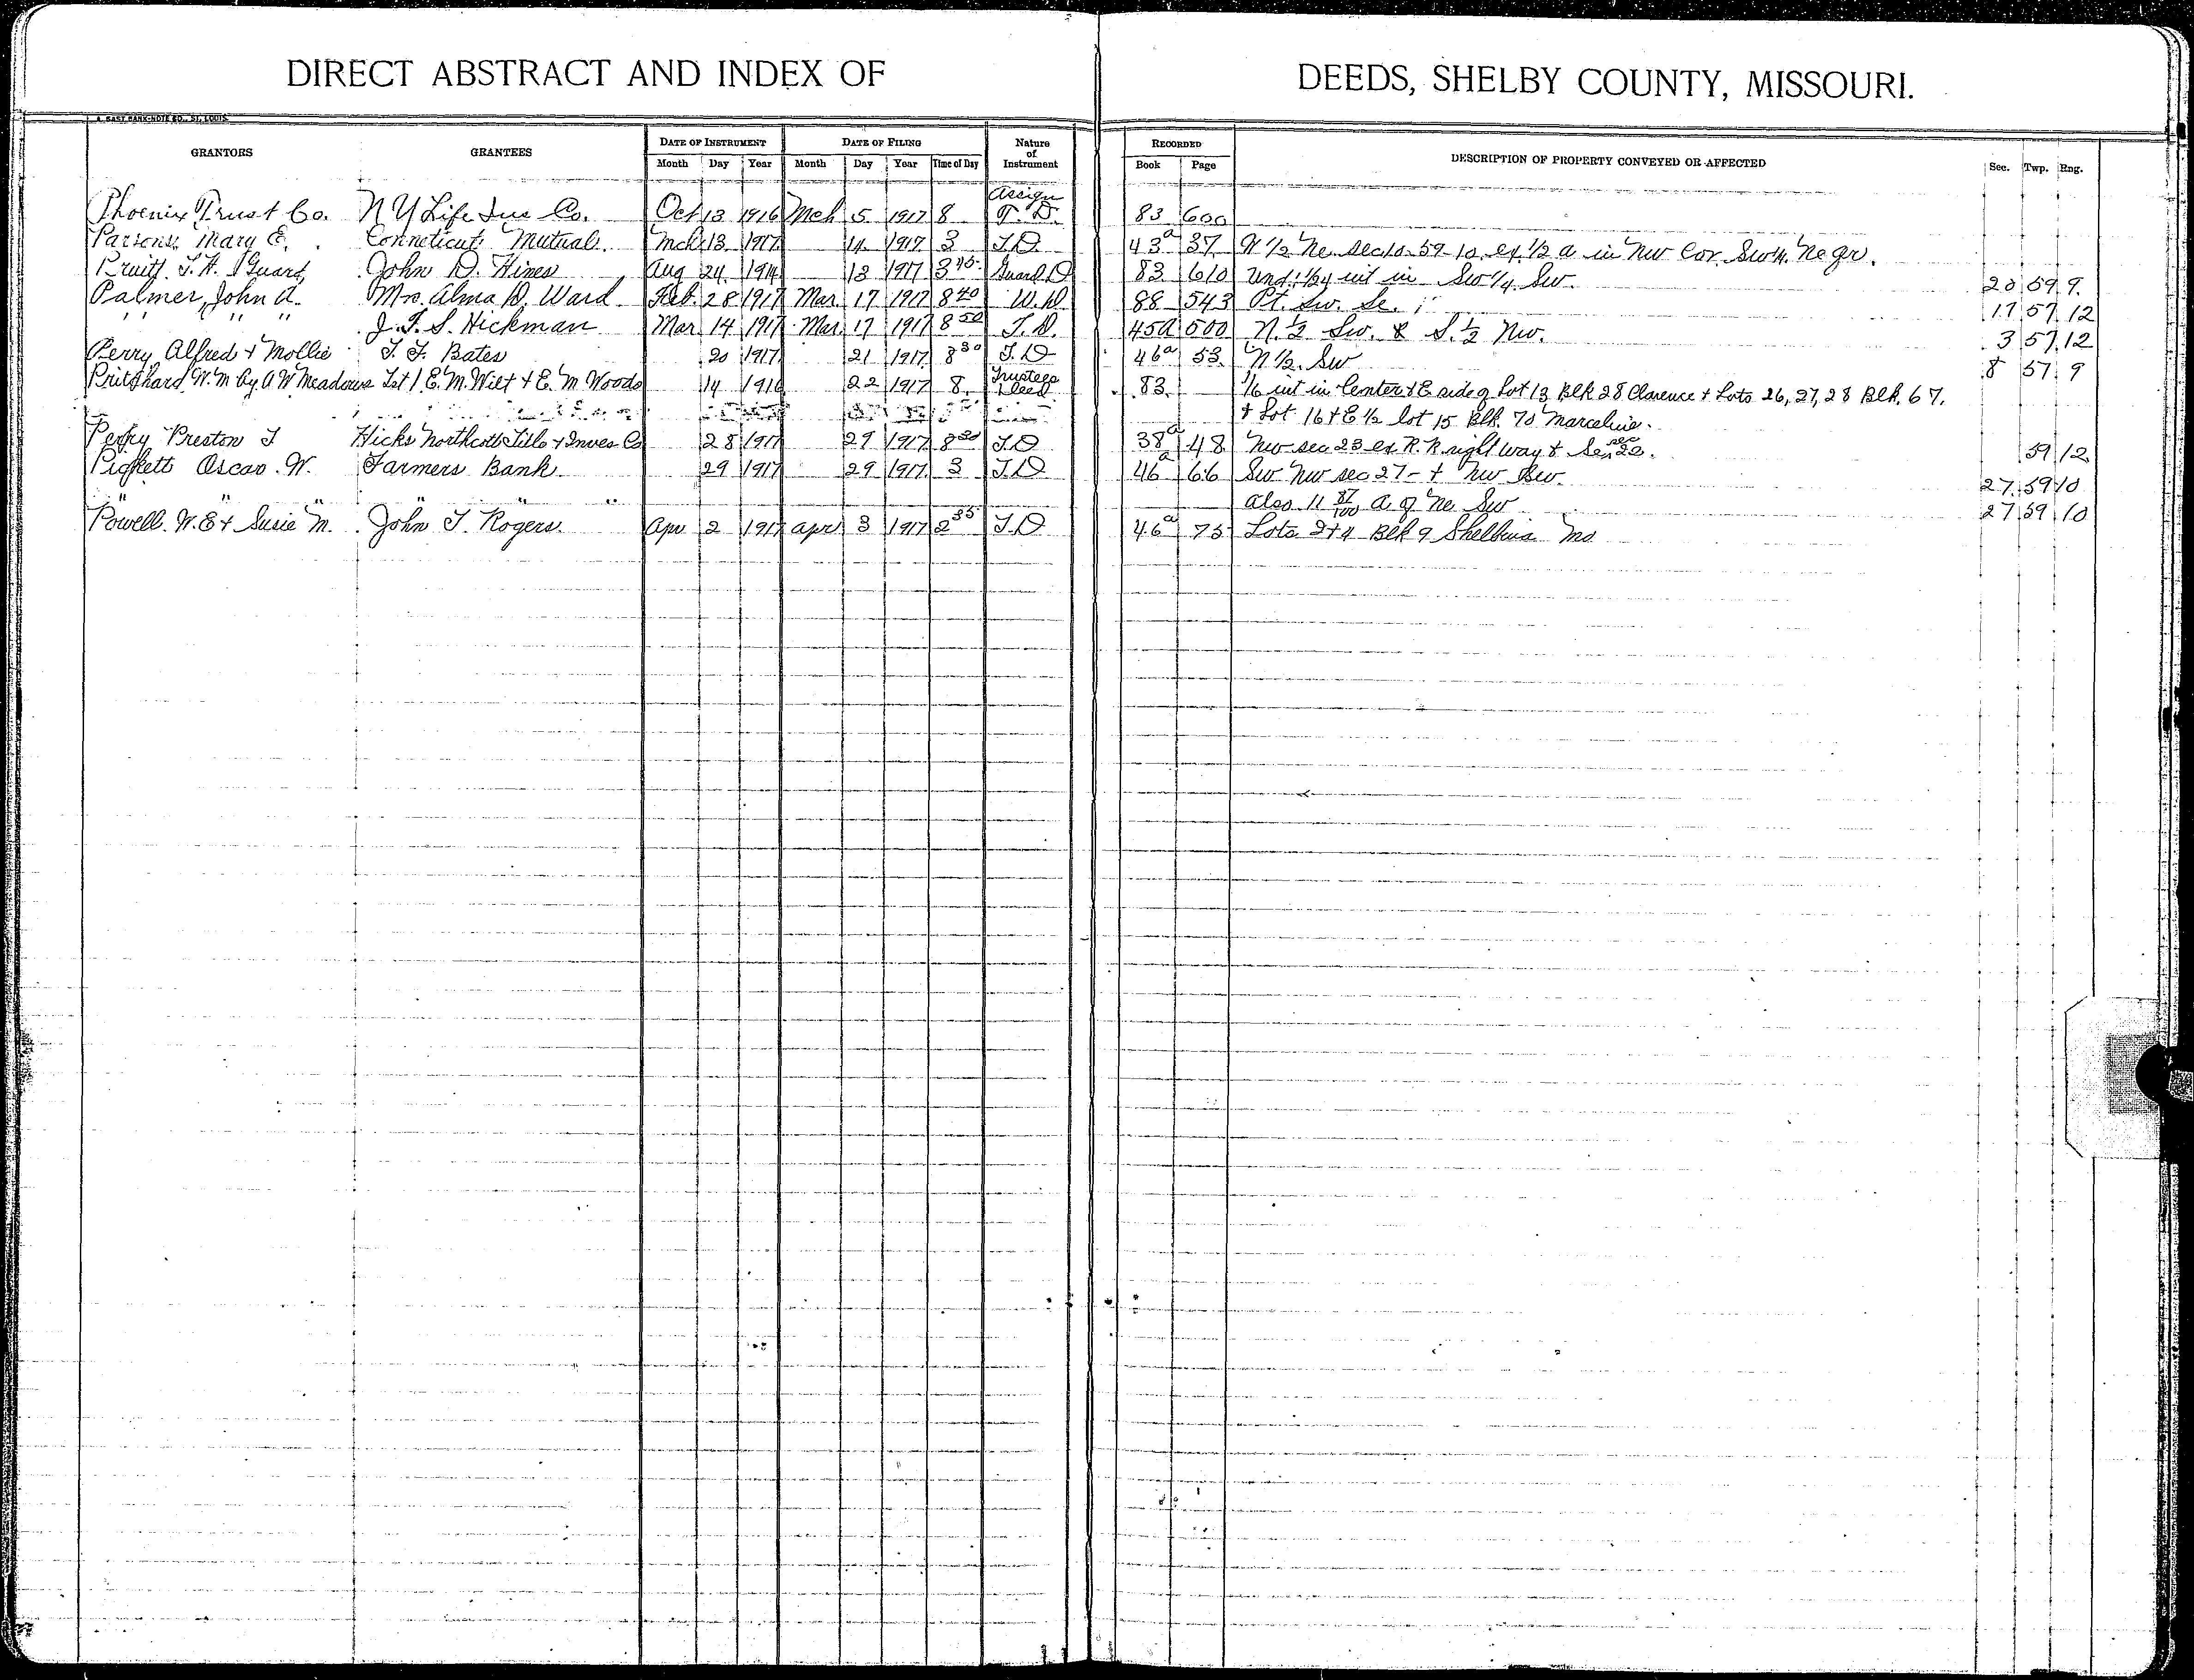 DIRECT ABSTRACT AND INDEX OF DEEDS, SHELBY COUNTY, MISSOURI.
GRANTORS GRANTEES DATE OF INSTRUMENT DATE OF FILING Nature of Instrument RECORDED DESCRIPTION OF PROPERTY CONVEYED OR AFFECTED Sec. Twp. Rng.
Month Day Year Month Day Year Time of Day Book Page
Phoenix Trust Co. N Y Life Ins Co. Oct 13 1916 Mch 5 1917 8 Assign T. D. 83 600
Parsons, Mary E. Conneticut Mutual Mch 13 1917 14 1917 3 T.D 43a 37 N 1/2 Ne. Sec 10-59-10 ex 1/2 a in Nw Cor. Sw 1/4 Ne qr.
Pruitt, T. H. Guard John D. Hines Aug 24 1914 13 1917 3 45 Guard D 83 610 Und. 1/24 int in Sw 1/4 Sw. 20 59 9
Palmer, John A. Mrs. Alma D. Ward Feb. 28 1917 Mar. 17 1917 8 40 W.D 88 543 Pt. Sw. Se. 17 57 12
" " " J. T. S. Hickman Mar 14 1917 Mar. 17 1917 8 50 T. D. 45a 500 N. 1/2 Sw. & S. 1/2 Nw. 3 57 12
Perry Alfred + Mollie T. F. Bates 20 1917 21 1917 8 30 T.D 46a 53 N 1/2 Sw 8 57 9
Pritchard W. M by A W Meadows 1st / E. M. Wilt + E. M Woods 14 1916 22 1917 8 Trustees Deed 83 1/6 int in Center & E side of Lot 13 Blk 28 Clarence + Lots 26, 27, 28 Blk. 67.
& Lot 16 + E 1/2 lot 15 Blk. 70 Marceline.
Perry Preston T Hicks Northcott Title + Inves Co 28 1917 29 1917 8 30 T.D 38a 48 Nw sec 23 ex R. R right way & Se sec 22. 59 12
Pickett Oscar. W. Farmers Bank 29 1917 29 1917 3 T.D 46a 66 Sw Nw sec 27 - + Nw Sw. 27 59 10
" " " " " also 11 87/100 A. of Ne Sw 27 59 10
Powell. W. E + Susie M. John T. Rogers Apr 2 1917 apr 3 1917 2 35 T.D 46a 75 Lots 3 + 4 Blk 9 Shelbina Mo